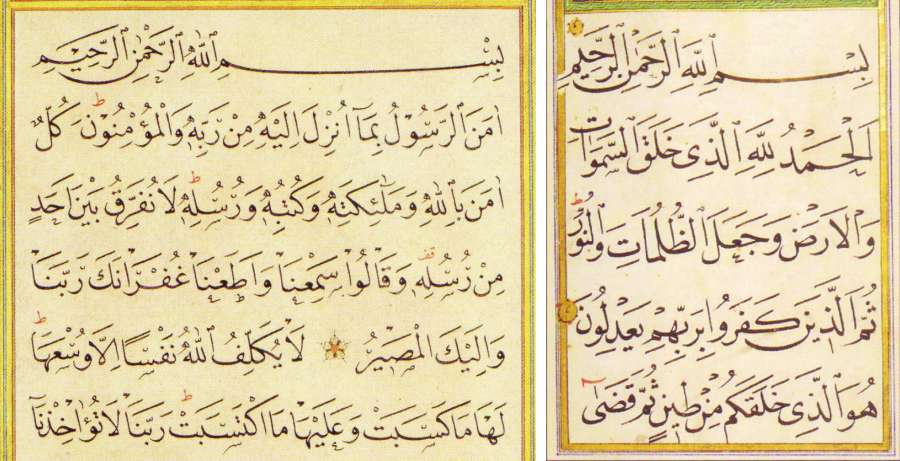 بِسْمِ ٱللّٰهِ ٱلرَّحْمٰنِ ٱلرَّحِيمِ
اٰمَنَ ٱلرَّسُولُ بِمَٓا اُنْزِلَ اِلَيْهِ مِنْ رَبِّهٖ وَالْمُؤْمِنُونَ ط كُلٌّ
اٰمَنَ بِاللّٰهِ وَمَلٰٓئِكَتِهٖ وَكُتُبِهٖ وَرُسُلِهٖ ط لَا نُفَرِّقُ بَيْنَ اَحَدٍ
مِنْ رُسُلِهٖ قف وَقَالُوا سَمِعْنَا وَاَطَعْنَا غُفْرَانَكَ رَبَّنَا
وَاِلَيْكَ الْمَصِيرُ لَا يُكَلِّفُ اللّٰهُ نَفْسًا اِلَّا وُسْعَهَا ط
لَهَا مَا كَسَبَتْ وَعَلَيْهَا مَا اكْتَسَبَتْ ط رَبَّنَا لَا تُؤَاخِذْنَٓا
بِسْمِ ٱللّٰهِ ٱلرَّحْمٰنِ ٱلرَّحِيمِ
اَلْحَمْدُ لِلّٰهِ ٱلَّذِى خَلَقَ ٱلسَّمٰوَاتِ
وَالْاَرْضَ وَجَعَلَ الظُّلُمَاتِ وَالنُّورَ ط
ثُمَّ الَّذِينَ كَفَرُوا بِرَبِّهِمْ يَعْدِلُونَ
هُوَ الَّذِى خَلَقَكُمْ مِنْ طِينٍ ثُمَّ قَضٰٓى